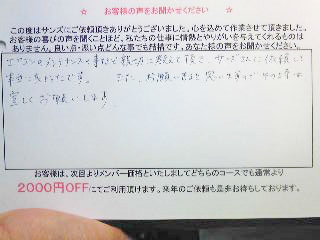 ☆ お客様の声をお聞かせください ☆
この度はサンズにご依頼頂きありがとうございました。心を込めて作業させて頂きました。
お客様の喜びの声を聞くことほど、私たちの仕事に情熱とやりがいを与えてくれるものは
ありません。良い点・悪い点どんな事でも結構です。あなた様の声をお聞かせください。
エアコンのメンテナンスの事など親切に教えて頂き、サンズさんに依頼して
本当に良かったです。 また、お願いすると思いますが、その時は
宜しくお願いします
お客様は、次回よりメンバー価格といたしましてどちらのコースでも通常より
2000円OFFにてご利用頂けます。来年のご依頼も是非お待ちしております。